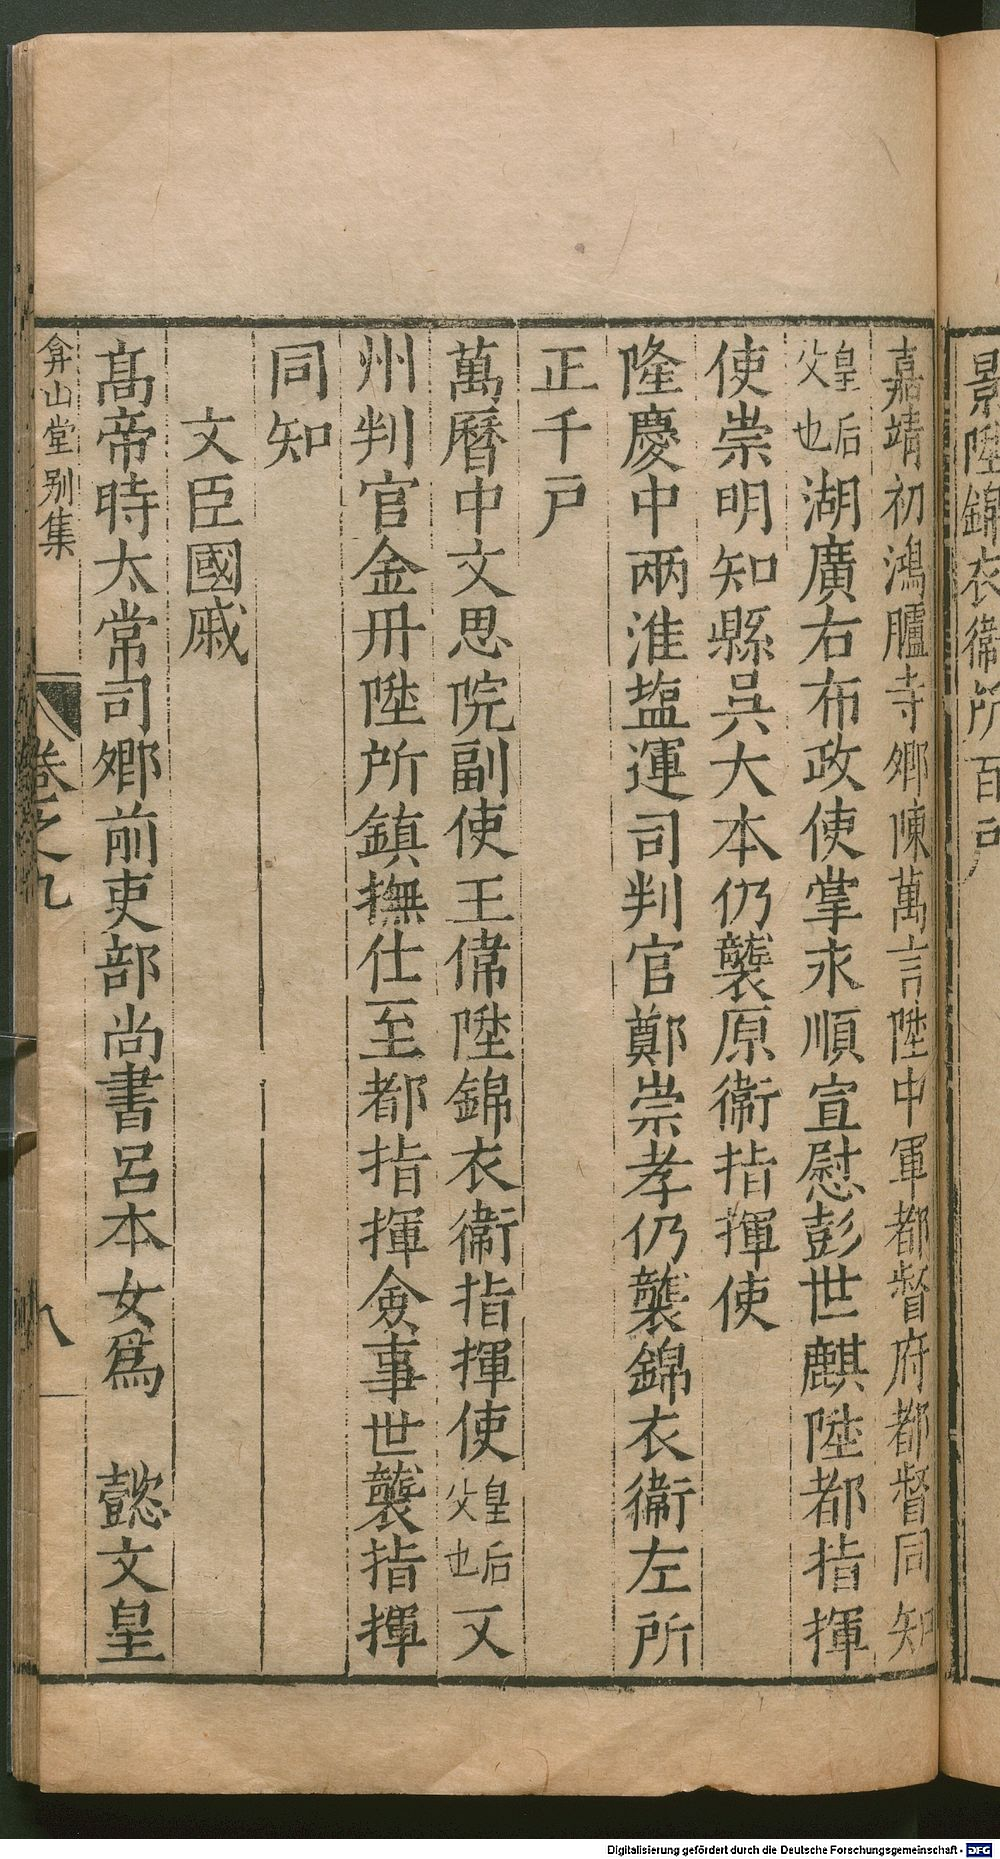 景陞錦衣衛所百戶
嘉靖初鴻臚寺卿陳萬言陞中軍都督府都督同知
皇后
父也
湖廣右布政使掌永順宣慰彭世麒陞都指揮
使崇明知縣吳大本仍襲原衛指揮使
隆慶中兩淮塩運司判官鄭崇孝仍襲錦衣衛左所
正千戶
萬曆中文思院副使王偉陞錦衣衛指揮使
皇后
父也
又
州判官金冊陞所鎮撫仕至都指揮僉事世襲指揮
同知
文臣國戚
高帝時太常司卿前吏部尚書呂本女爲 懿文皇
弇山堂别集
卷之九
八
Digitalisierung gefördert durch die Deutsche Forschungsgemeinschaft - DFG